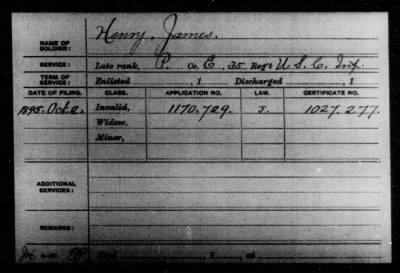 NAME OF SOLDIER: Henry, James.
SERVICE: Late rank, P. Co. E, 35 Reg't U. S. C. Inf.
TERM OF SERVICE: Enlisted , 1 Discharged , 1
DATE OF FILING. CLASS. APPLICATION NO. LAW. CERTIFICATE NO.
1895. Oct. 2. Invalid, 1170.729. J. 1027.277.
Widow,
Minor,
ADDITIONAL SERVICES:
REMARKS:
Died , 1 , at